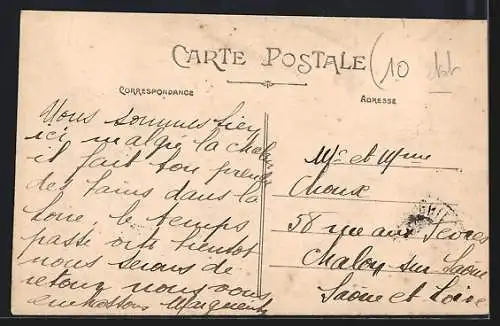 CARTE POSTALE
(10
CORRESPONDANCE
ADRESSE
Nous sommes bien
ici malgré la chaleur
il fait bon prendre
des bains dans la
Loire, le temps
passe vite bientôt
nous serons de
retour nous vous
embrassons Marguerite
Mr et Mme
Choux
58 rue aux Fèvres
Chalon sur Saone
Saone et Loire